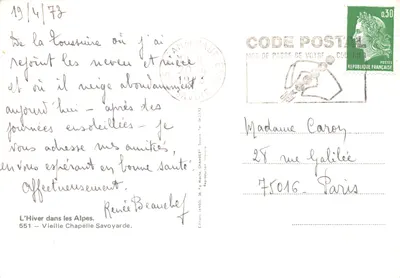 19/4/73
De la Toussuire où j'ai
rejoint les neveu et nièce
et où il neige abondamment
aujourd'hui - après des
journées ensoleillées - je
vous adresse mes amitiés,
en vous espérant en bonne santé.
Affectueusement.
Renée
L'Hiver dans les Alpes.
551 - Vieille Chapelle Savoyarde.
CODE POSTAL
0,30
POSTES
REPUBLIQUE FRANÇAISE
Madame Caron
28 rue Galilée
75016 - Paris